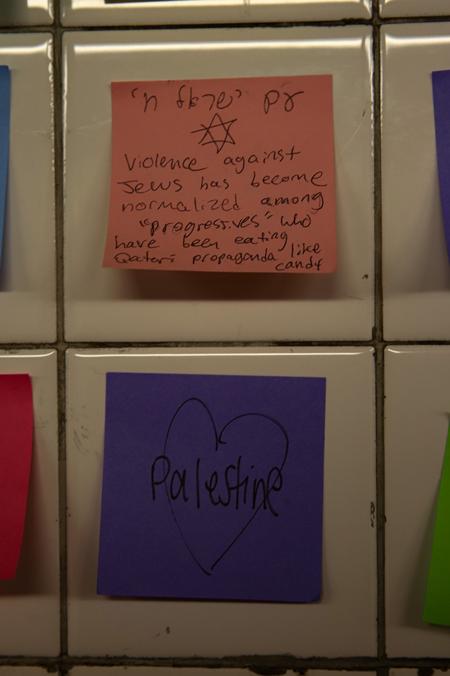 עם ישראל חי
Violence against
Jews has become
normalized among
"progressives" who
have been eating
Qatari propaganda like
candy
Palestine